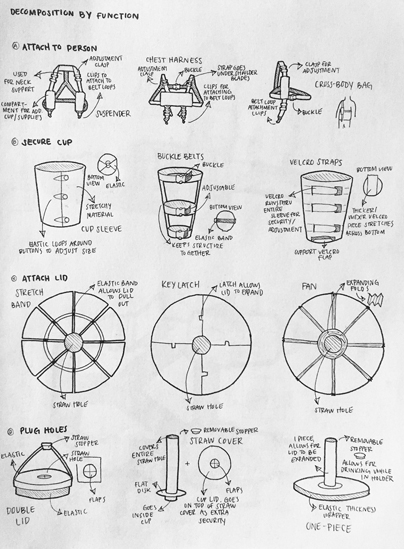 DECOMPOSITION BY FUNCTION
Ⓐ ATTACH TO PERSON
USED
FOR NECK
SUPPORT
ADJUSTMENT
CLASP
CLIPS TO
ATTACH TO
BELT LOOPS
COMPART-
MENT FOR
CUP/SUPPLIES
SUSPENDER
CHEST HARNESS
ADJUSTMENT
CLASP
BUCKLE
STRAP GOES
UNDER SHOULDER
BLADES
CLIPS FOR
ATTACHING
TO BELT LOOPS
CLASP FOR
ADJUSTMENT
CROSS-BODY
BAG
BELT LOOP
ATTACHMENT
CLIPS
BUCKLE
Ⓑ SECURE CUP
BOTTOM
VIEW
ELASTIC
STRETCHY
MATERIAL
CUP SLEEVE
ELASTIC LOOPS AROUND
BUTTONS TO ADJUST SIZE
BUCKLE BELTS
BUCKLE
ADJUSTABLE
BOTTOM VIEW
ELASTIC BAND
KEEPS STRUCTURE
TOGETHER
VELCRO STRAPS
BOTTOM VIEW
VELCRO
RUNS THRU
ENTIRE
SLEEVE FOR
SECURITY/
ADJUSTMENT
THICKER/
WIDER VELCRO
PIECE STRETCHES
ACROSS BOTTOM
SUPPORT VELCRO
FLAP
Ⓒ ATTACH LID
STRETCH
BAND
ELASTIC BAND
ALLOWS LID
TO PULL
OUT
STRAW HOLE
KEY LATCH
LATCH ALLOWS
LID TO EXPAND
STRAW HOLE
FAN
EXPANDING
FOLDS
STRAW HOLE
Ⓓ PLUG HOLES
STRAW
STOPPER
ELASTIC
STRAW
HOLE
FLAPS
DOUBLE
LID
ELASTIC
REMOVABLE STOPPER
STRAW COVER
COVERS
ENTIRE
STRAW HOLE
FLAT
DISK
GOES
INSIDE
CUP
FLAPS
CUP LID GOES
ON TOP OF STRAW
COVER AS EXTRA
SECURITY
1 PIECE,
ALLOWS FOR
LID TO BE
EXPANDED
REMOVABLE
STOPPER
ALLOWS FOR
DRINKING WHILE
IN HOLDER
ELASTIC THICKNESS
WRAPPER
ONE-PIECE